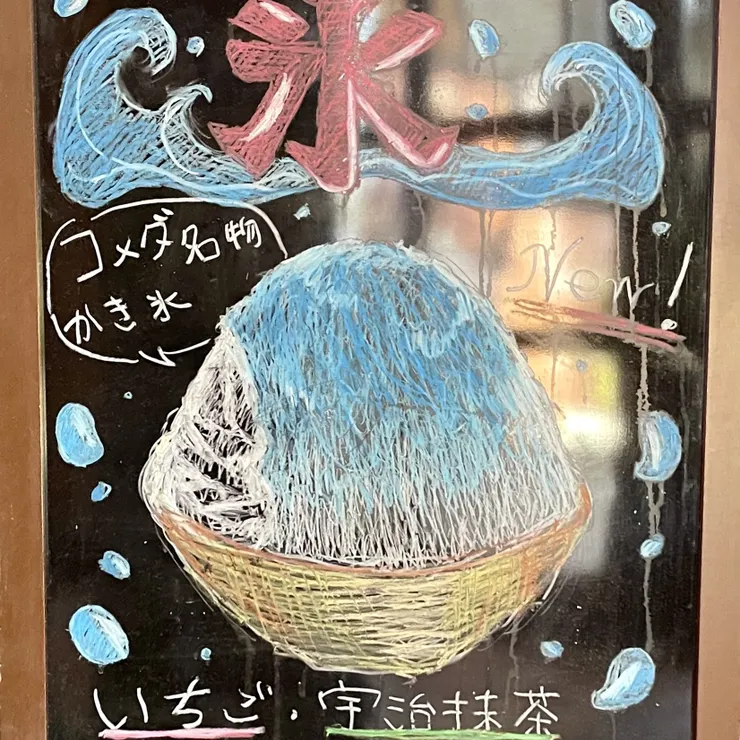 氷
コメダ名物
かき氷
New!
いちご・宇治抹茶